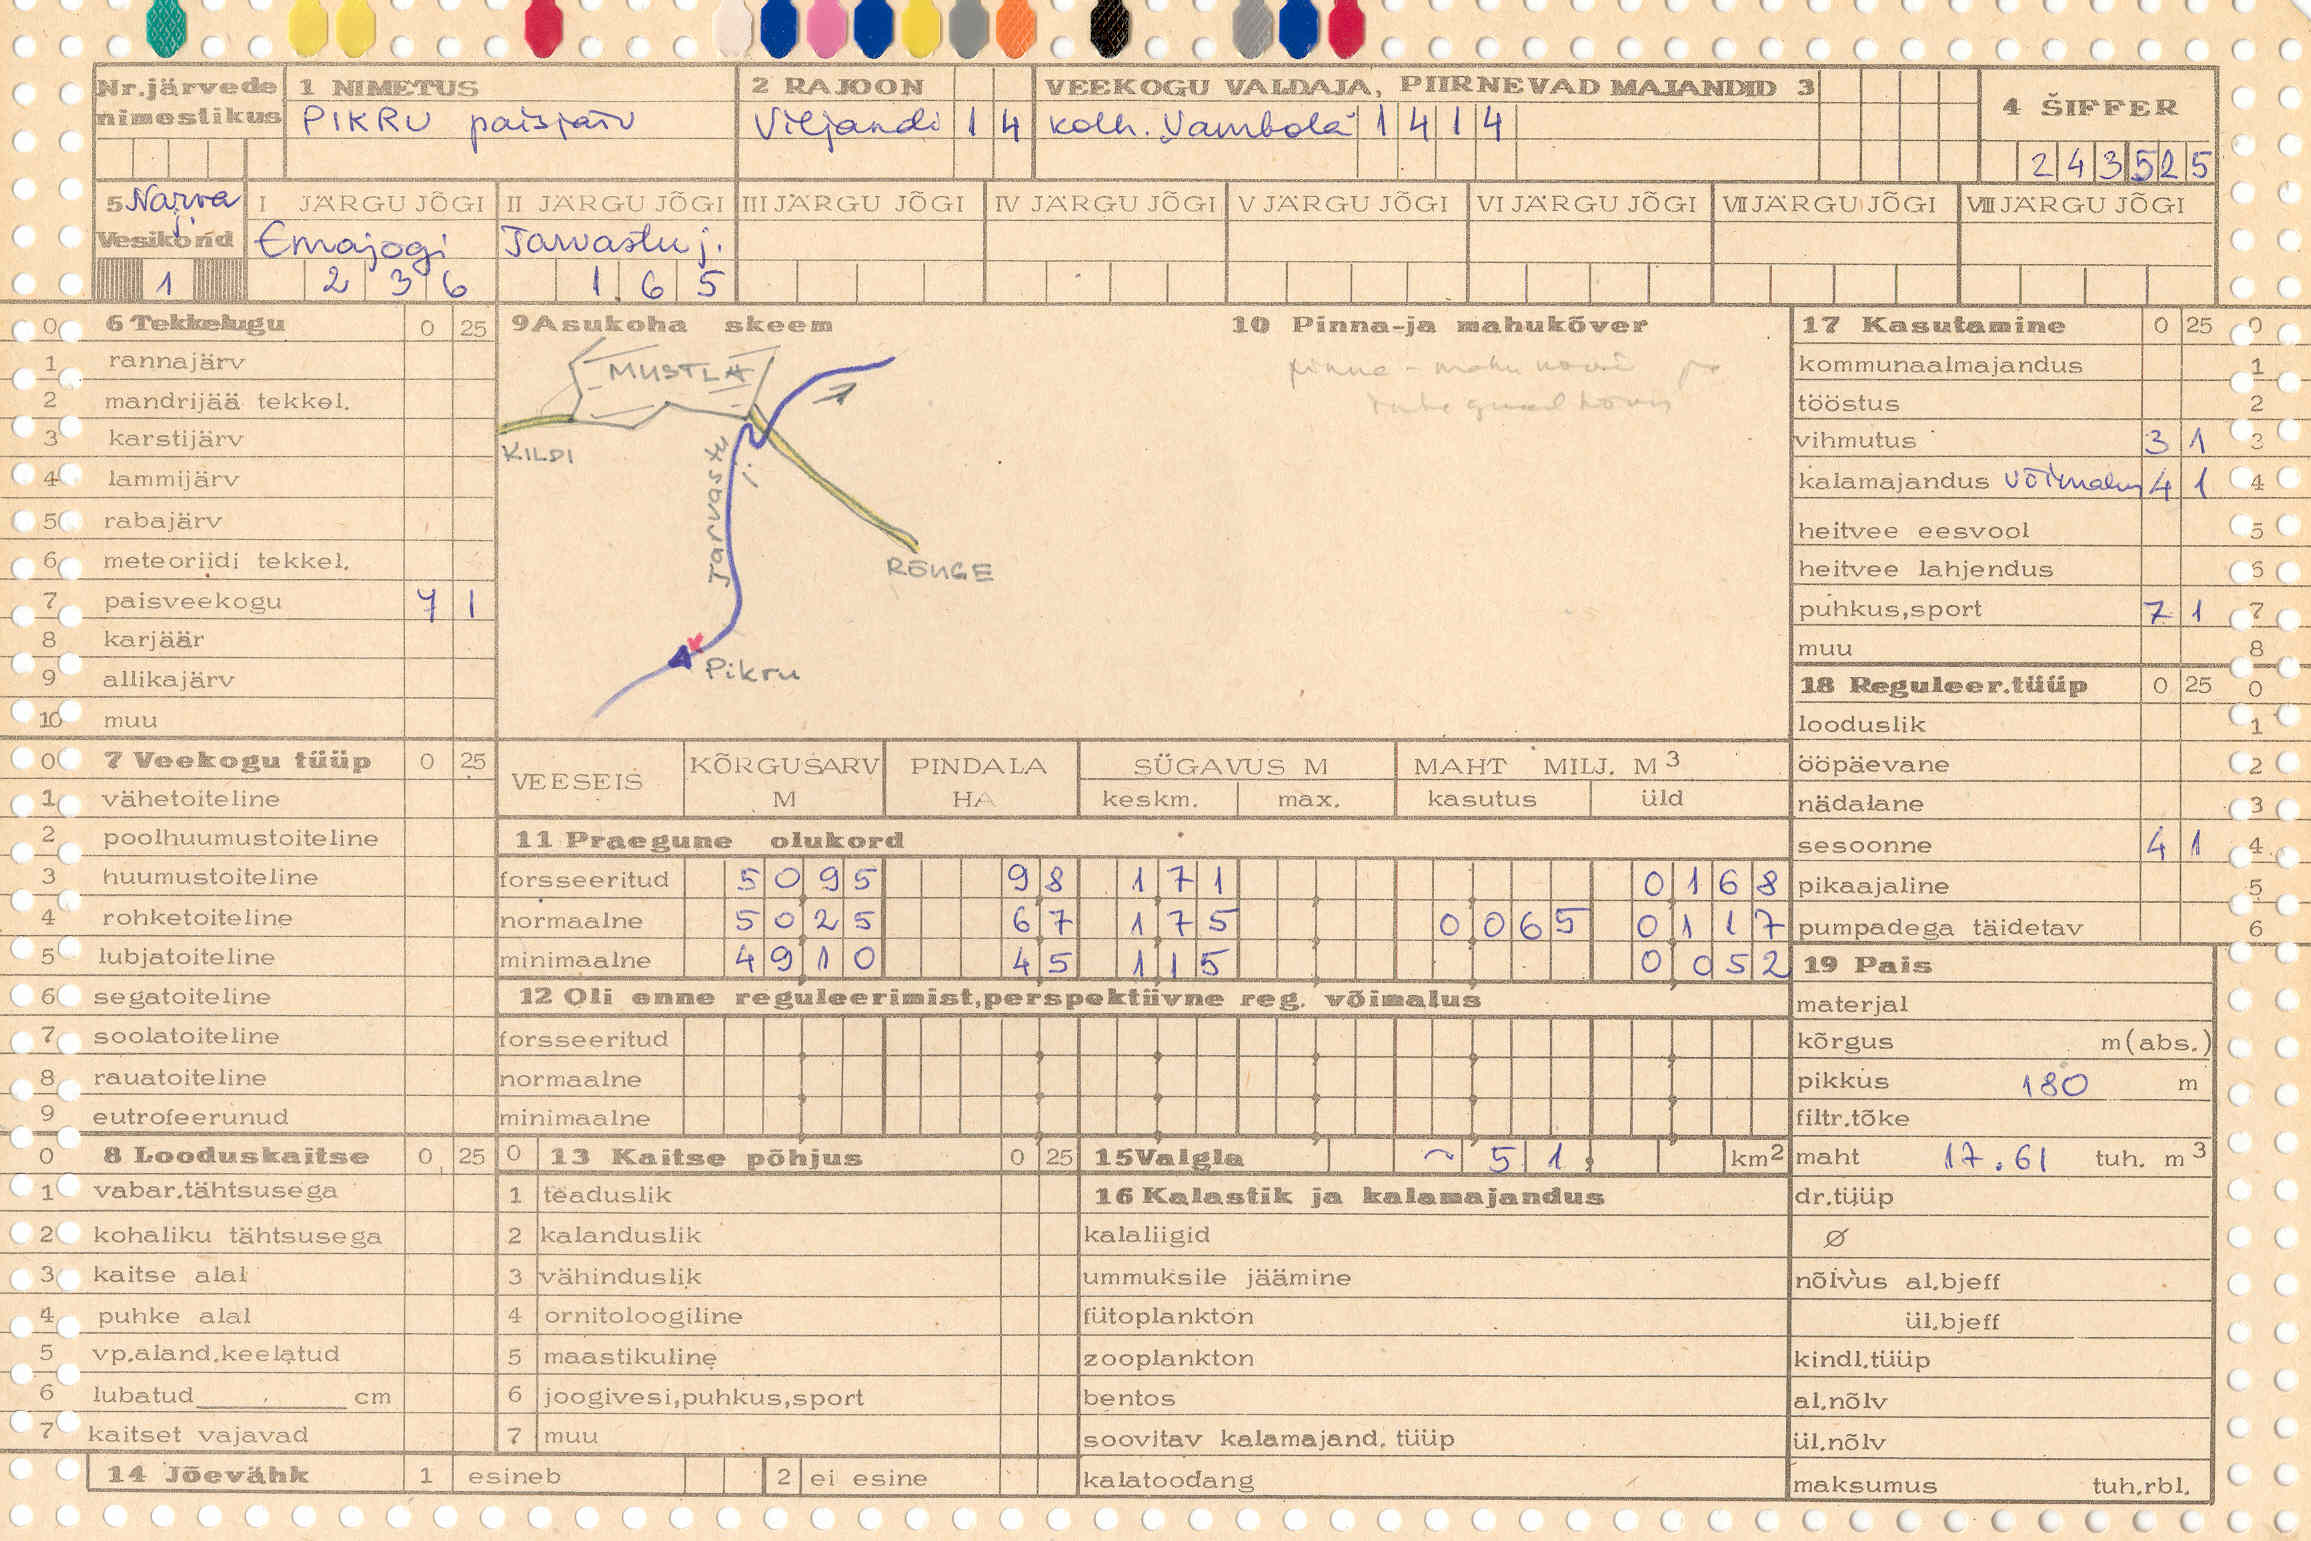 Nr.järvede nimestikus
1 NIMETUS
PIKRU paisjärv
2 RAJOON
Viljandi 1 4
VEEKOGU VALDAJA, PIIRNEVAD MAJANDID 3
kolh. „Vambola" 1 4 1 4
4 ŠIFFER
2 4 3 5 2 5
5 Narva j.
Vesikond
1
I JÄRGU JÕGI
Emajogi
2 3 6
II JÄRGU JÕGI
Tarvastu j.
1 6 5
III JÄRGU JÕGI
IV JÄRGU JÕGI
V JÄRGU JÕGI
VI JÄRGU JÕGI
VII JÄRGU JÕGI
VIII JÄRGU JÕGI
0 6 Tekkelugu 0 25
1 rannajärv
2 mandrijää tekkel.
3 karstijärv
4 lammijärv
5 rabajärv
6 meteoriidi tekkel.
7 paisveekogu 7 1
8 karjäär
9 allikajärv
10 muu
0 7 Veekogu tüüp 0 25
1 vähetoiteline
2 poolhuumustoiteline
3 huumustoiteline
4 rohketoiteline
5 lubjatoiteline
6 segatoiteline
7 soolatoiteline
8 rauatoiteline
9 eutrofeerunud
0 8 Looduskaitse 0 25
1 vabar.tähtsusega
2 kohaliku tähtsusega
3 kaitse alal
4 puhke alal
5 vp.aland.keelatud
6 lubatud cm
7 kaitset vajavad
14 Jõevähk 1 esineb 2 ei esine
9 Asukoha skeem
MUSTLA
KILDI
Tarvastu j.
RÕUGE
Pikru
10 Pinna-ja mahukõver
VEESEIS
KÕRGUSARV M
PINDALA HA
SÜGAVUS M
keskm. max.
MAHT MILJ. M3
kasutus üld
11 Praegune olukord
forsseeritud 5 0 9 5 9 8 1 7 1 0 1 6 8
normaalne 5 0 2 5 6 7 1 7 5 0 0 6 5 0 1 1 7
minimaalne 4 9 1 0 4 5 1 1 5 0 0 5 2
12 Oli enne reguleerimist,perspektiivne reg. võimalus
forsseeritud
normaalne
minimaalne
0 13 Kaitse põhjus 0 25
1 teaduslik
2 kalanduslik
3 vähinduslik
4 ornitoloogiline
5 maastikuline
6 joogivesi,puhkus,sport
7 muu
15 Valgla ~ 5 1, km2
16 Kalastik ja kalamajandus
kalaliigid
ummuksile jäämine
fütoplankton
zooplankton
bentos
soovitav kalamajand. tüüp
kalatoodang
17 Kasutamine 0 25 0
kommunaalmajandus 1
tööstus 2
vihmutus 3 1 3
kalamajandus võimalus 4 1 4
heitvee eesvool 5
heitvee lahjendus 6
puhkus,sport 7 1 7
muu 8
18 Reguleer.tüüp 0 25 0
looduslik 1
ööpäevane 2
nädalane 3
sesoonne 4 1 4
pikaajaline 5
pumpadega täidetav 6
19 Pais
materjal
kõrgus m(abs.)
pikkus 180 m
filtr.tõke
maht 17.61 tuh. m3
dr.tüüp
Ø
nõlvus al.bjeff
ül.bjeff
kindl.tüüp
al.nõlv
ül.nõlv
maksumus tuh.rbl.